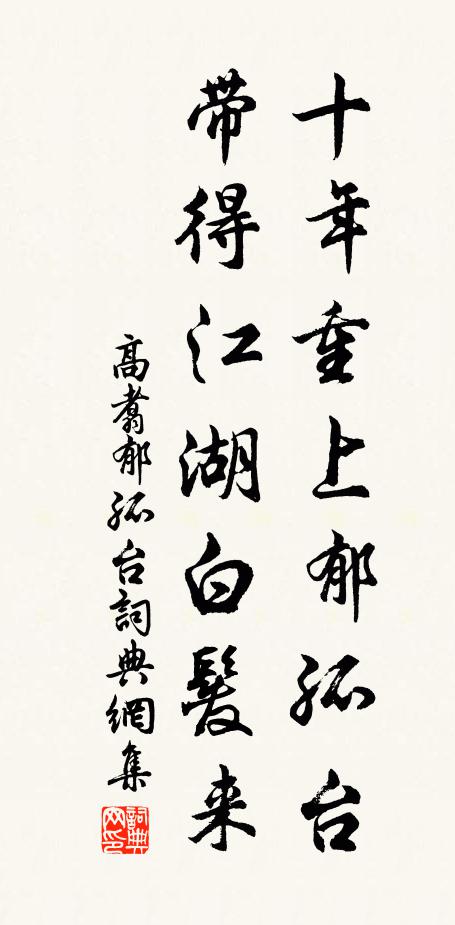 十年重上郁孤台
带得江湖白髮来
高翥郁孤台詞典網集
詞典网印